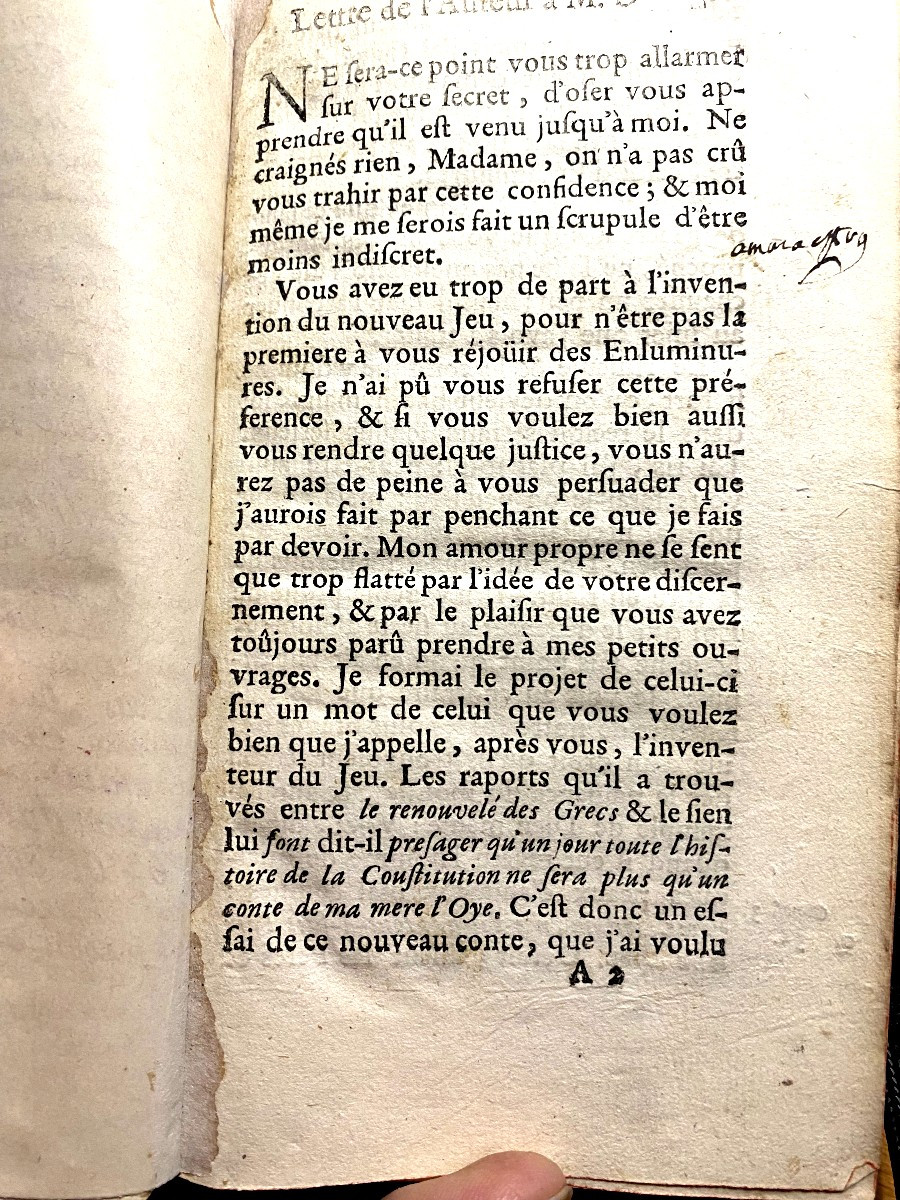 Lettre de l'Auteur à M.
NE ſera-ce point vous trop allarmer
ſur votre ſecret, d'oſer vous ap-
prendre qu'il eſt venu juſqu'à moi. Ne
craignés rien, Madame, on n'a pas crû
vous trahir par cette confidence; & moi
même je me ſerois fait un ſcrupule d'être
moins indiſcret.
Vous avez eu trop de part à l'inven-
tion du nouveau Jeu, pour n'être pas la
premiere à vous réjoüir des Enluminu-
res. Je n'ai pû vous refuſer cette pré-
ference, & ſi vous voulez bien auſſi
vous rendre quelque juſtice, vous n'au-
rez pas de peine à vous perſuader que
j'aurois fait par penchant ce que je fais
par devoir. Mon amour propre ne ſe ſent
que trop flatté par l'idée de votre diſcer-
nement, & par le plaiſir que vous avez
toûjours parû prendre à mes petits ou-
vrages. Je formai le projet de celui-ci
ſur un mot de celui que vous voulez
bien que j'appelle, après vous, l'inven-
teur du Jeu. Les raports qu'il a trou-
vés entre le renouvelé des Grecs & le ſien
lui font dit-il preſager qu'un jour toute l'hiſ-
toire de la Conſtitution ne ſera plus qu'un
conte de ma mere l'Oye. C'eſt donc un eſ-
ſai de ce nouveau conte, que j'ai voulu
A 2